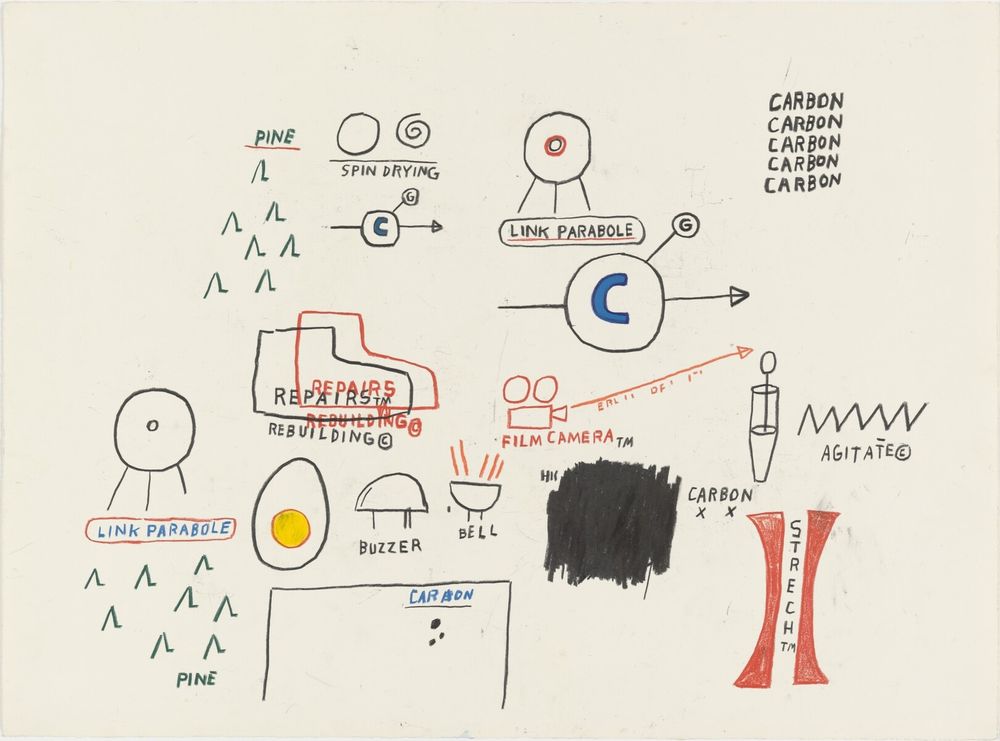 PINE
SPIN DRYING
G
C
LINK PARABOLE
G
C
CARBON
CARBON
CARBON
CARBON
CARBON
REPAIRS
REPAIRS™
REBUILDING©
REBUILDING©
FILM CAMERA™
AGITATE©
LINK PARABOLE
BUZZER
BELL
CARBON
X X
STRECH™
CARBON
PINE